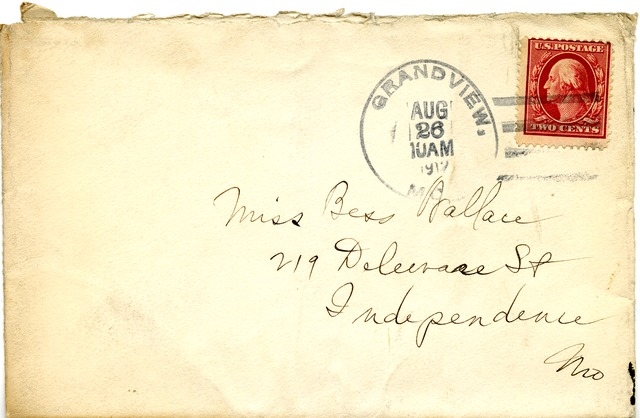 U.S. POSTAGE
TWO CENTS
GRANDVIEW,
AUG
26
10AM
1912
MO.
Miss Bess Wallace
219 Delaware St
Independence
Mo